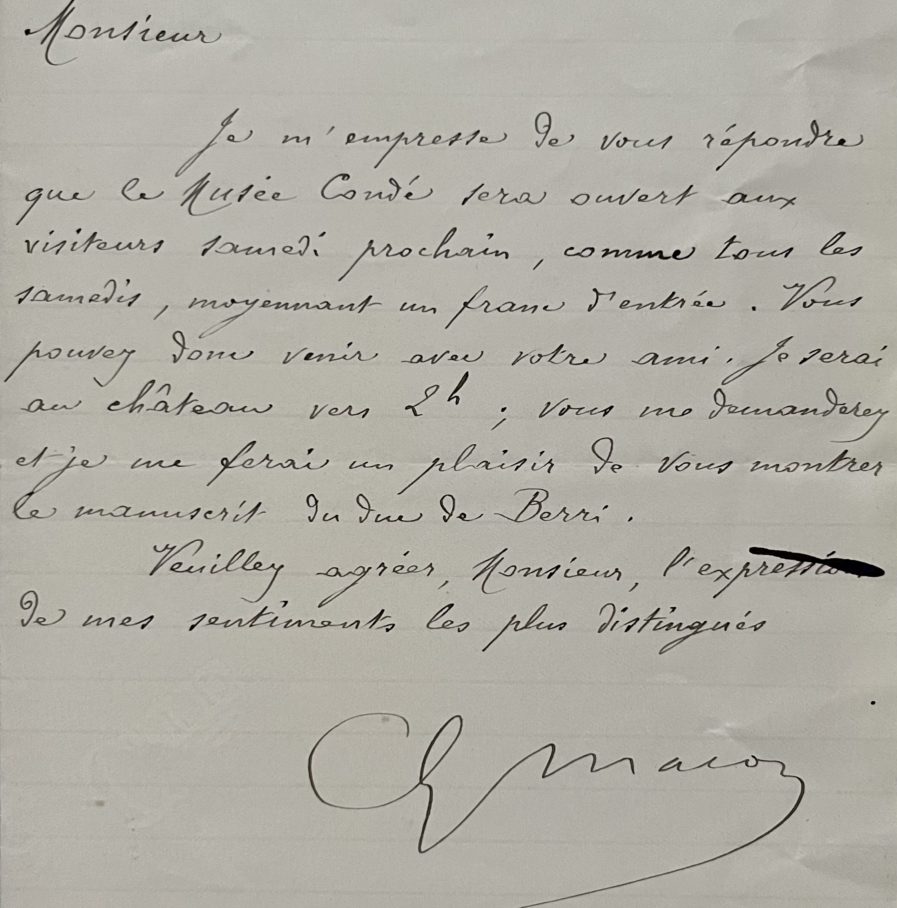 Monsieur
Je m'empresse de vous répondre
que le Musée Condé sera ouvert aux
visiteurs samedi prochain, comme tous les
samedis, moyennant un franc d'entrée. Vous
pouvez donc venir avec votre ami. Je serai
au château vers 2h ; vous me demanderez
et je me ferai un plaisir de vous montrer
le manuscrit du duc de Berri.
Veuillez agréer, Monsieur, l'expression
de mes sentiments les plus distingués
G Macon